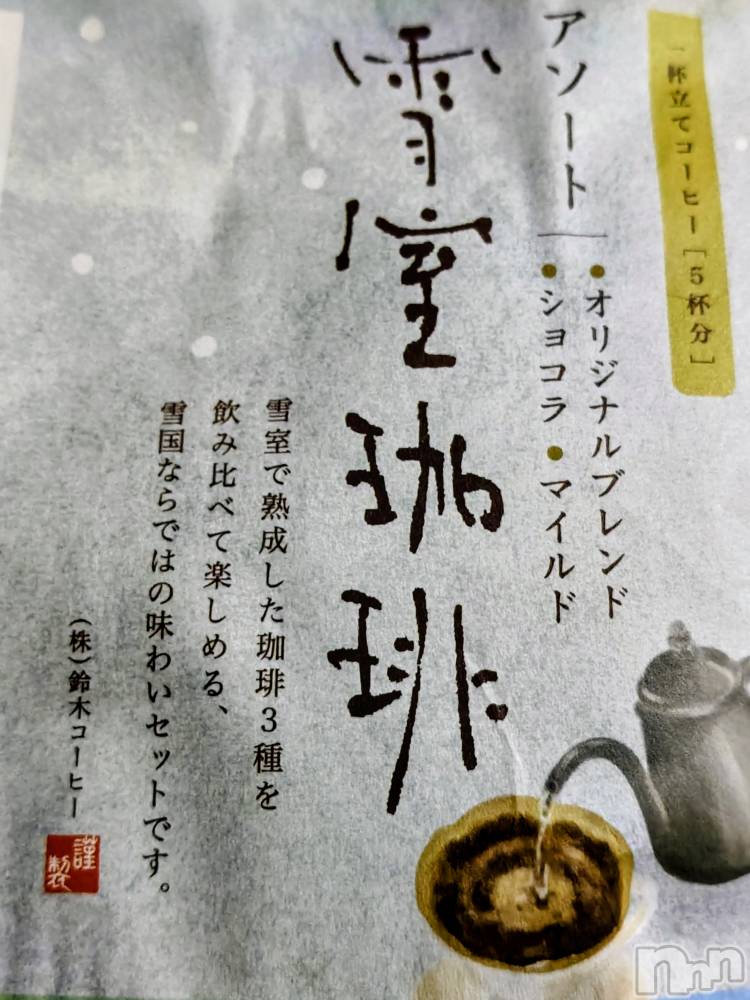 一杯立てコーヒー［5杯分］
アソート
●オリジナルブレンド
●ショコラ ●マイルド
雪室珈琲
雪室で熟成した珈琲3種を
飲み比べて楽しめる、
雪国ならではの味わいセットです。
(株)鈴木コーヒー
謹製
nnn